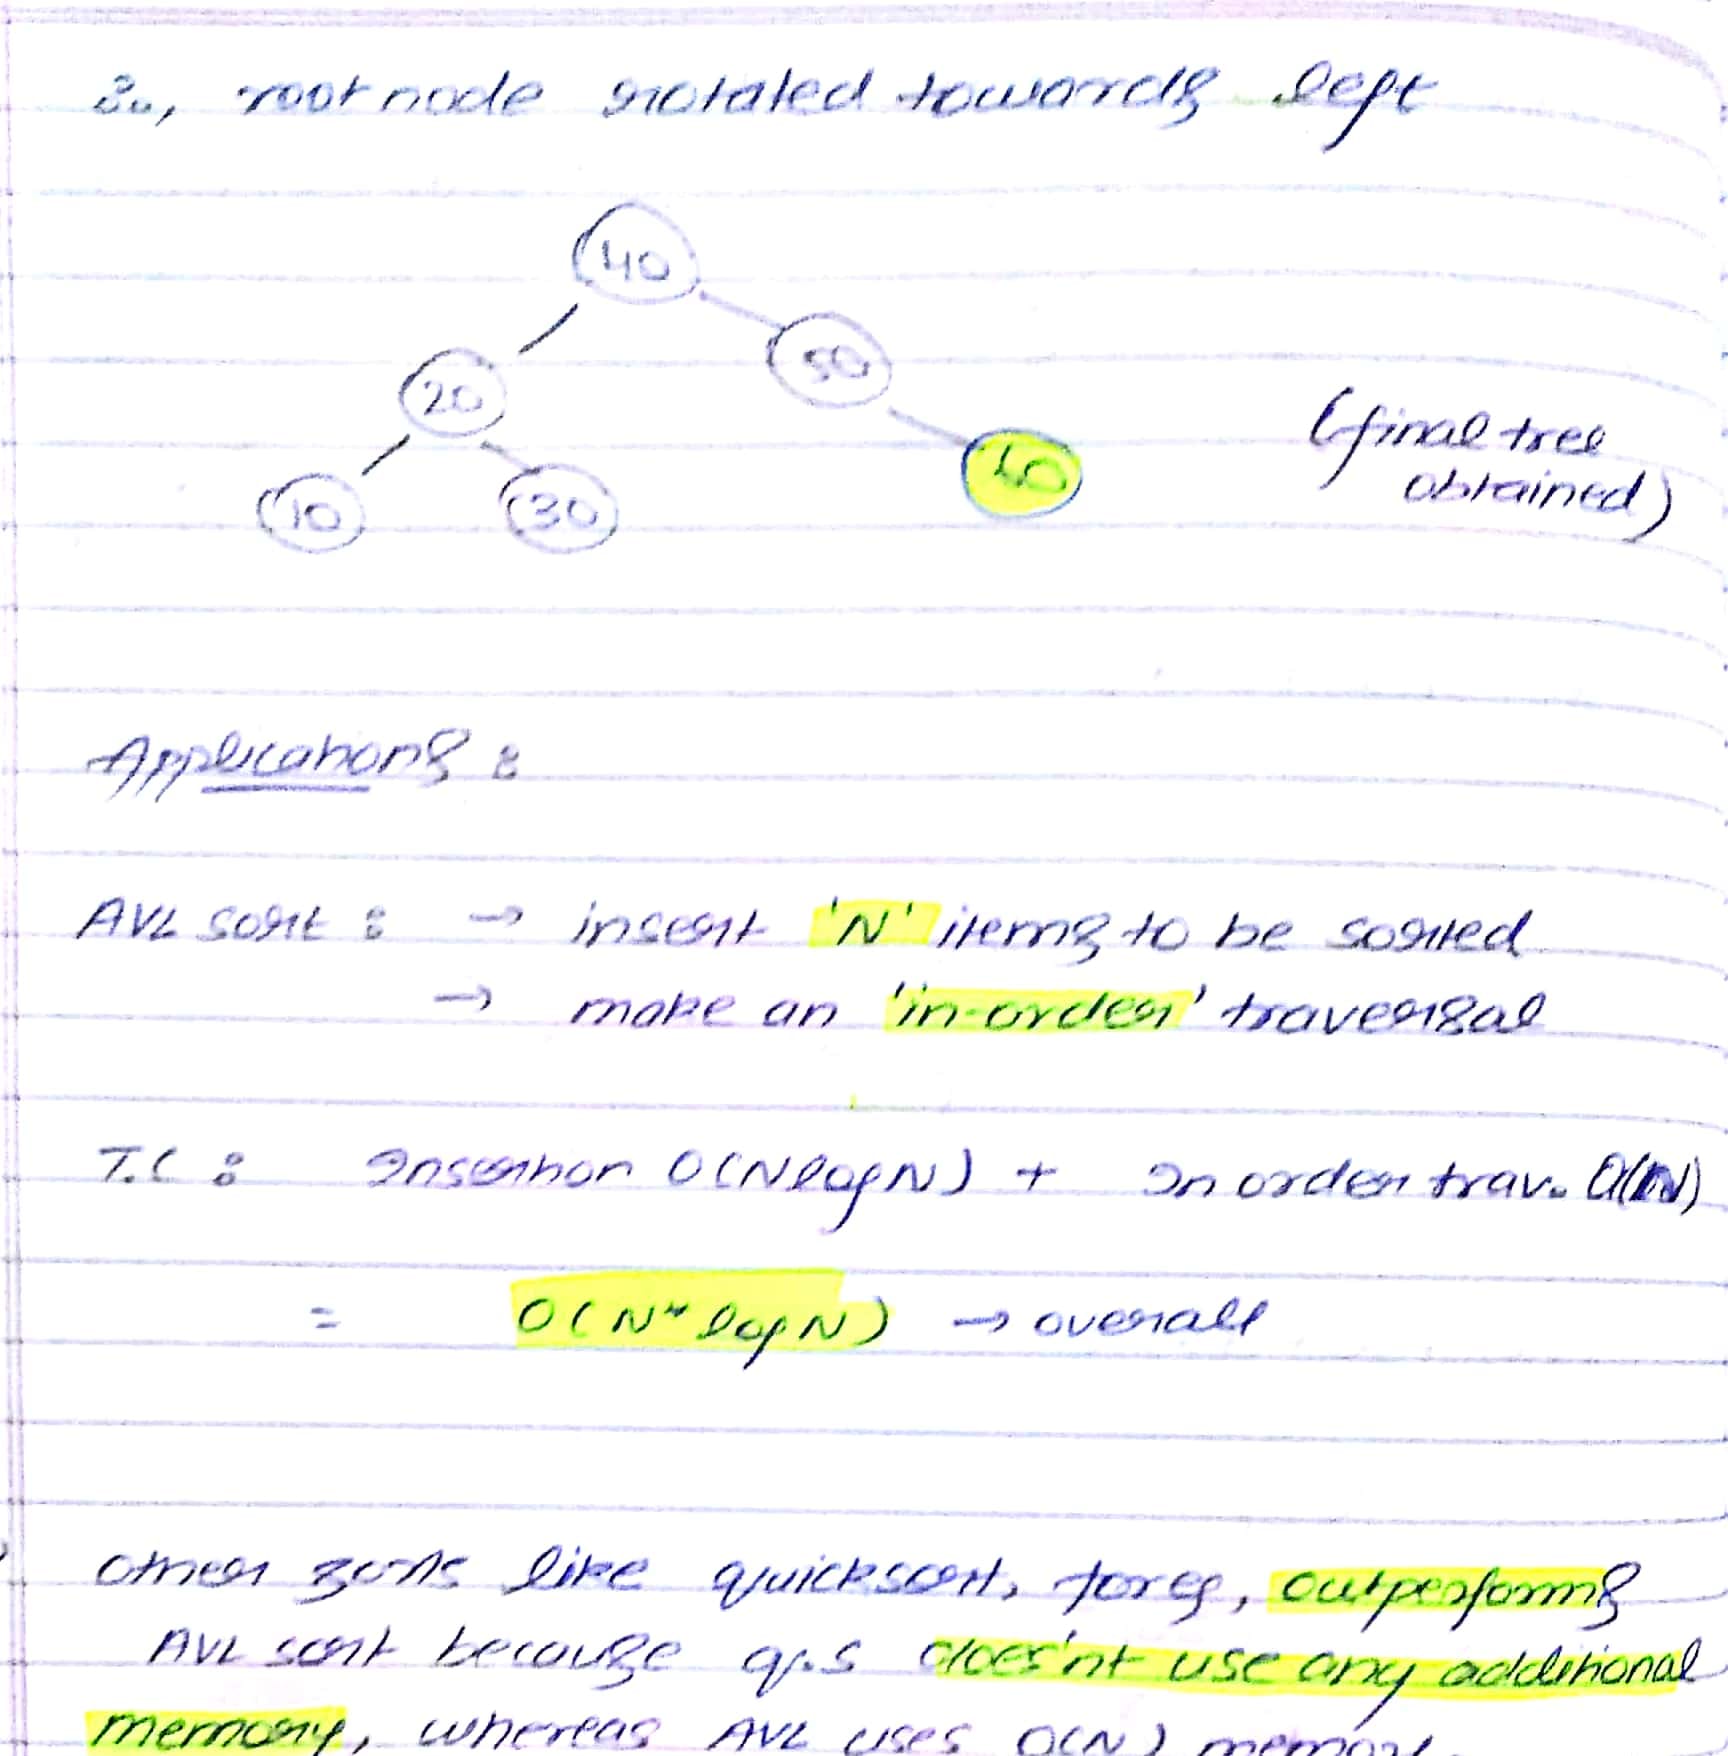 So, root node rotated towards left
40
50
20
(final tree
obtained)
10
30
Applications :
AVL sort : → insert 'N' items to be sorted
→ make an 'in-order' traversal
T.C : Insertion O(NlogN) + In order trav. O(N)
= O(N*logN) → overall
other sorts like quicksort, outperforms
AVL sort because q.s does'nt use any additional
memory, whereas AVL uses O(N) memory.